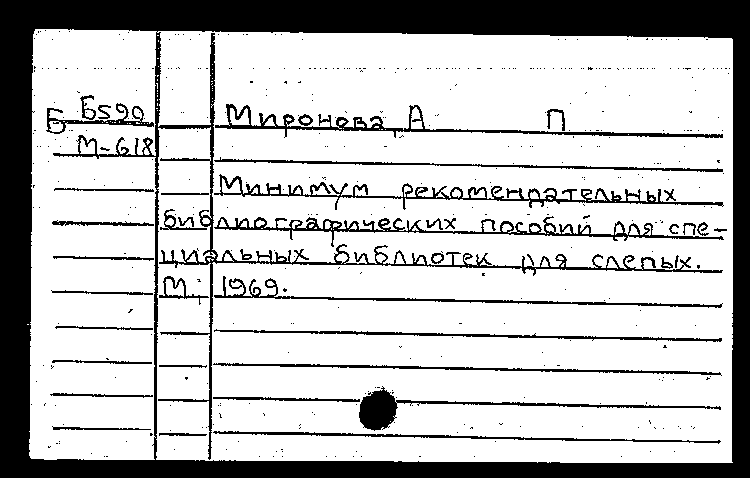 Б Б590 Миронова, А П
М-618
Минимум рекомендательных
библиографических пособий для спе-
циальных библиотек для слепых.
М., 1969.